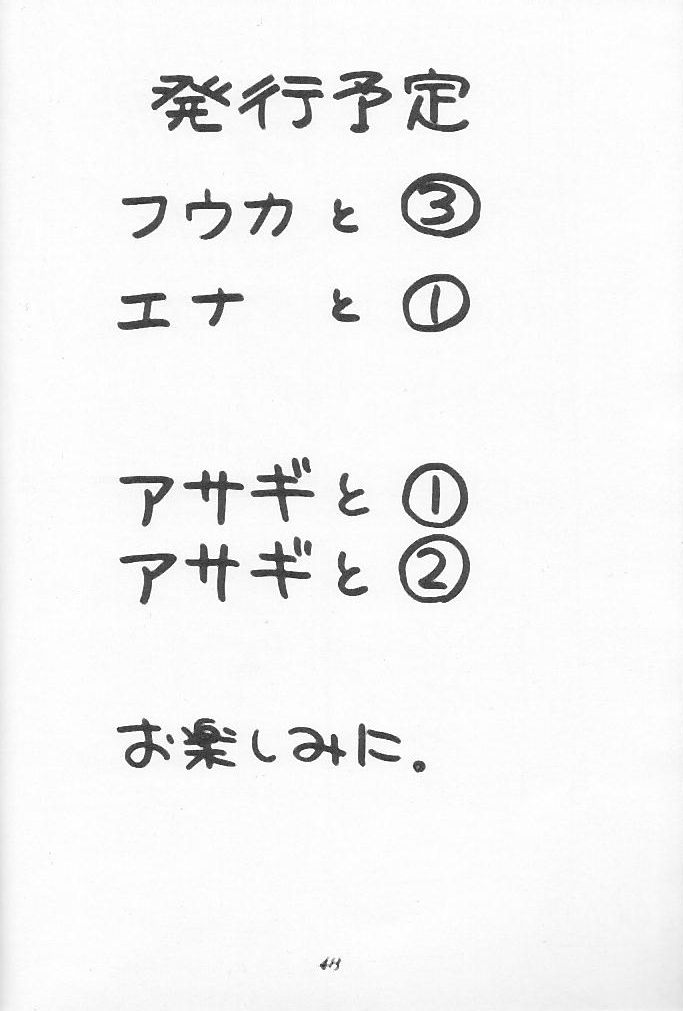 発行予定
フウカと③
エナ　と①
アサギと①
アサギと②
お楽しみに。
48